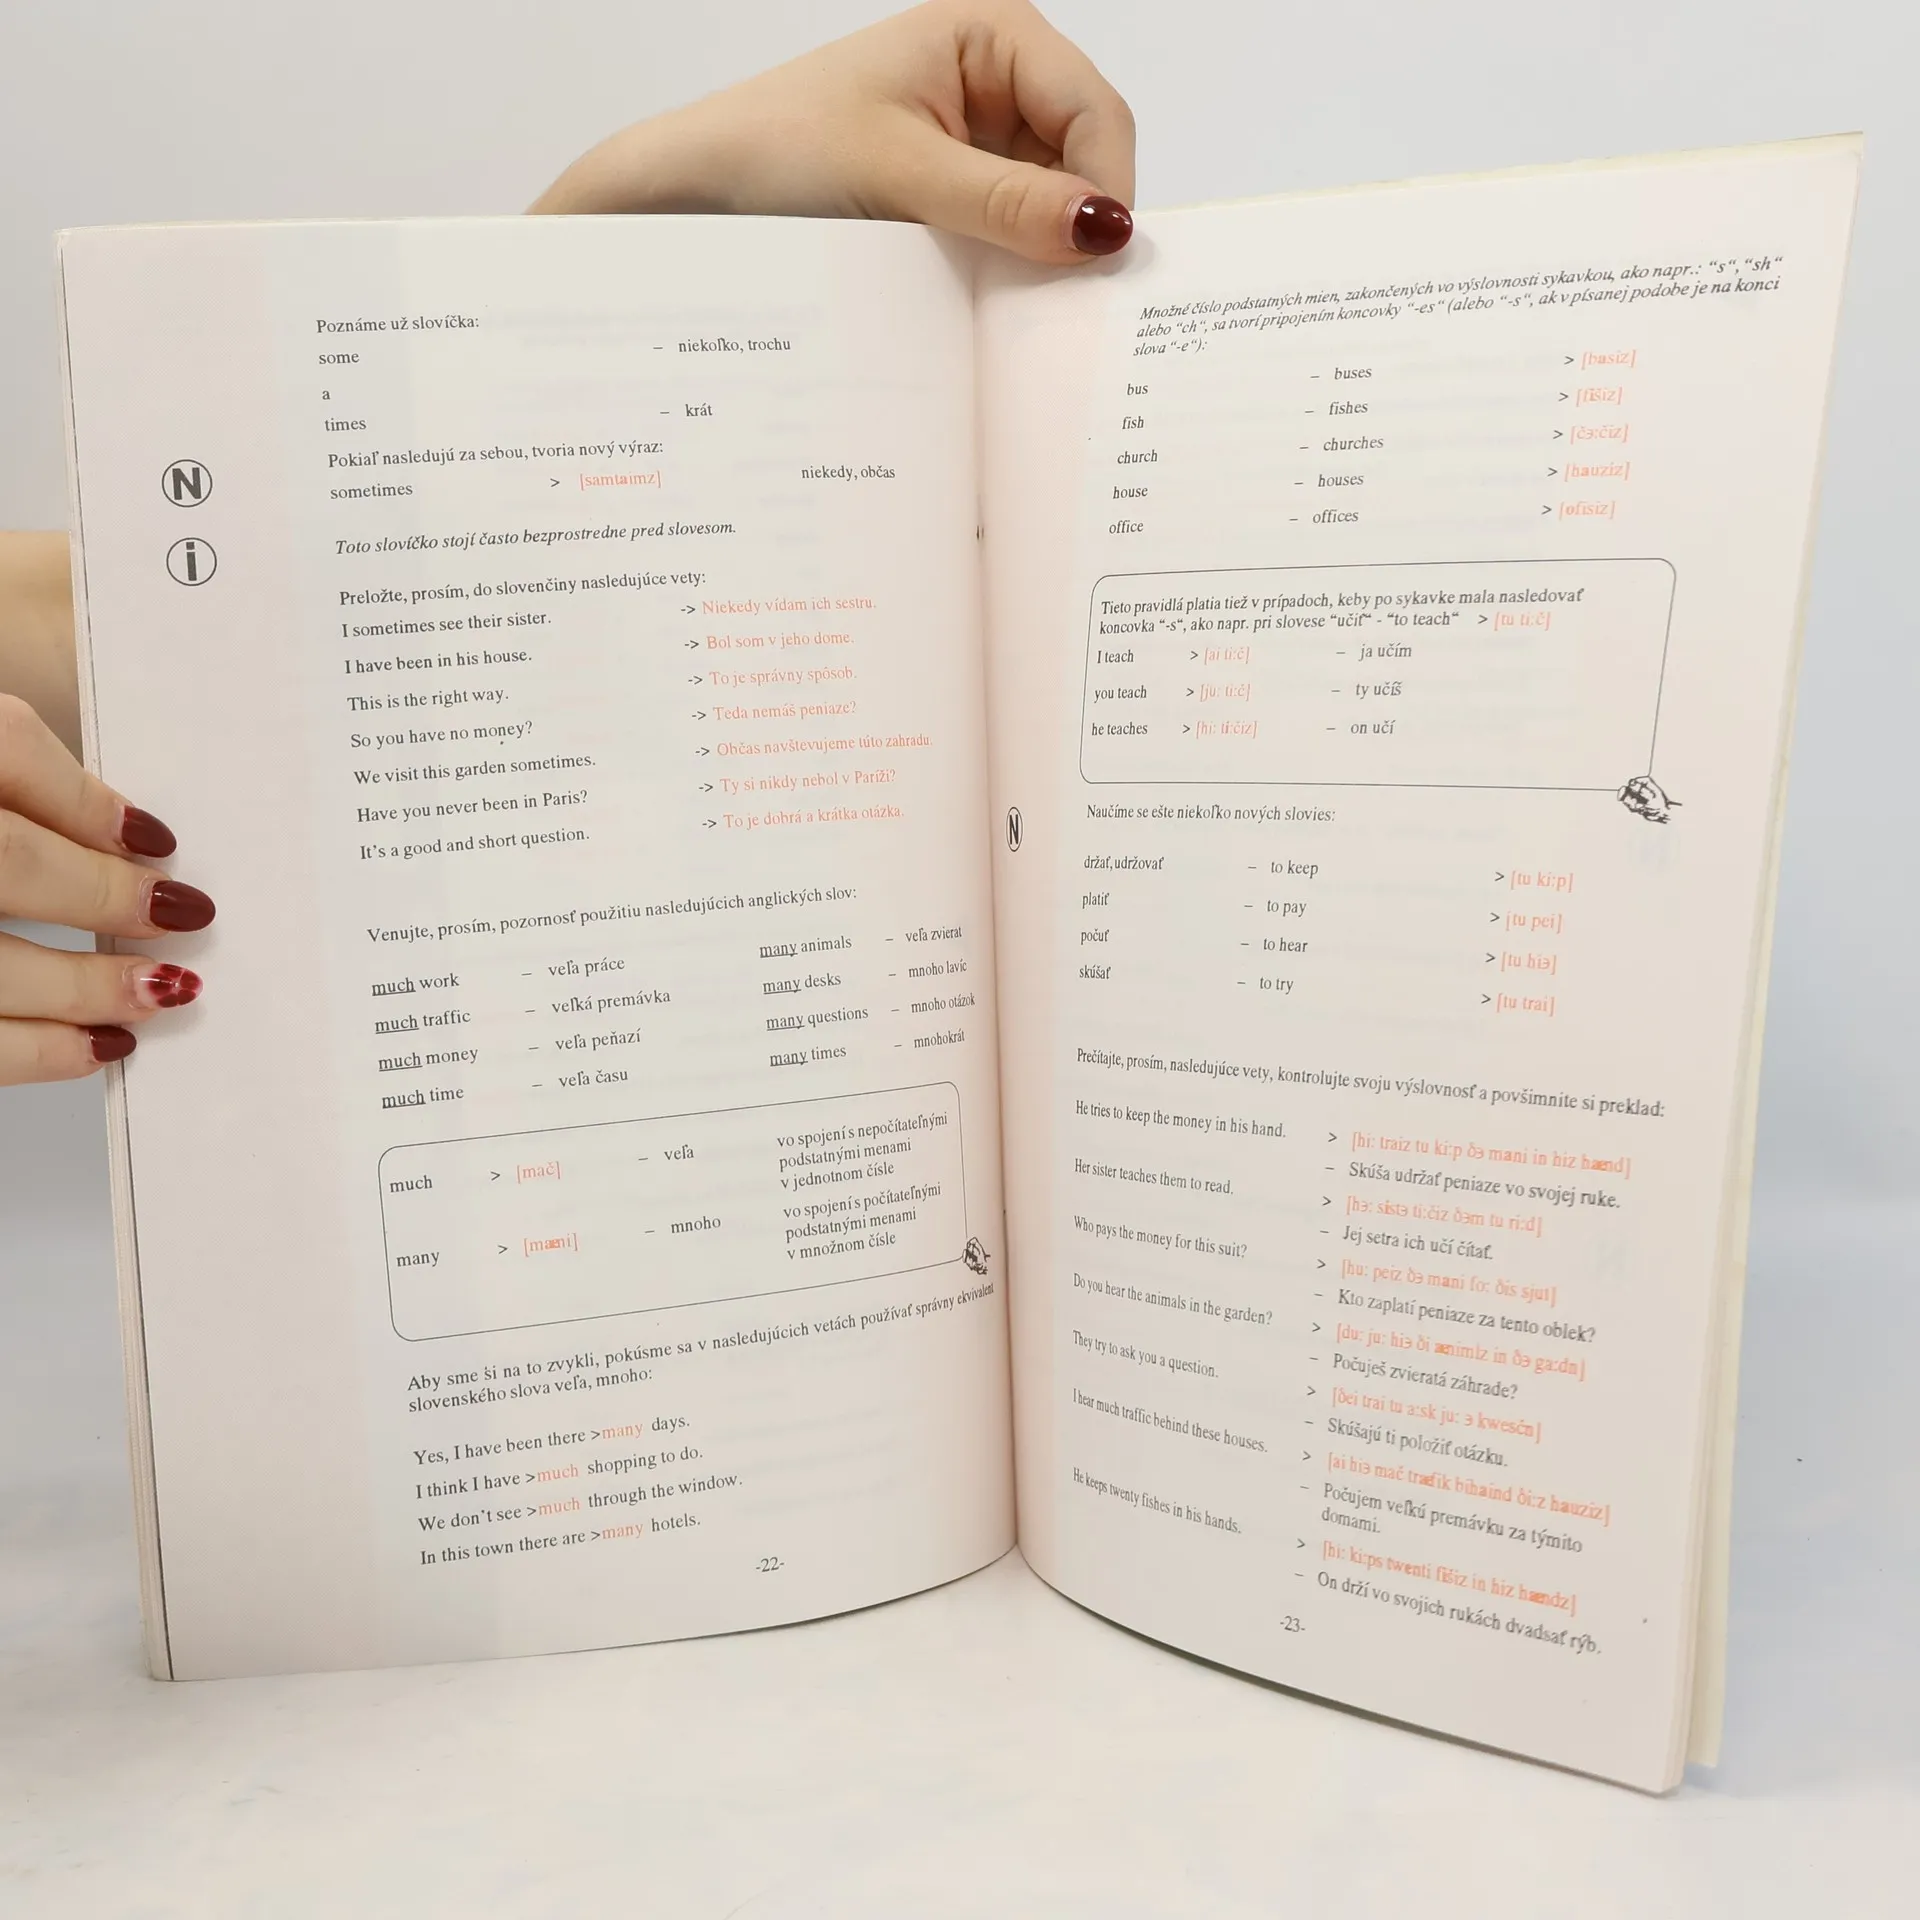 Poznáme už slovíčka:
some – niekoľko, trochu
a
times – krát
Pokiaľ nasledujú za sebou, tvoria nový výraz:
N
sometimes > [samtaimz] niekedy, občas
i
Toto slovíčko stojí často bezprostredne pred slovesom.
Preložte, prosím, do slovenčiny nasledujúce vety:
I sometimes see their sister. -> Niekedy vídam ich sestru.
I have been in his house. -> Bol som v jeho dome.
This is the right way. -> To je správny spôsob.
So you have no money? -> Teda nemáš peniaze?
We visit this garden sometimes. -> Občas navštevujeme túto zahradu.
Have you never been in Paris? -> Ty si nikdy nebol v Paríži?
It's a good and short question. -> To je dobrá a krátka otázka.
Venujte, prosím, pozornosť použitiu nasledujúcich anglických slov:
much work – veľa práce many animals – veľa zvierat
much traffic – veľká premávka many desks – mnoho lavíc
much money – veľa peňazí many questions – mnoho otázok
much time – veľa času many times – mnohokrát
much > [mač] – veľa vo spojení s nepočítateľnými
podstatnými menami
v jednotnom čísle
many > [mæni] – mnoho vo spojení s počítateľnými
podstatnými menami
v množnom čísle
Aby sme si na to zvykli, pokúsme sa v nasledujúcich vetách používať správny ekvivalent
slovenského slova veľa, mnoho:
Yes, I have been there >many days.
I think I have >much shopping to do.
We don't see >much through the window.
In this town there are >many hotels.
-22-
Množné číslo podstatných mien, zakončených vo výslovnosti sykavkou, ako napr.: "s", "sh"
alebo "ch", sa tvorí pripojením koncovky "-es" (alebo "-s", ak v písanej podobe je na konci
slova "-e"):
bus – buses > [basiz]
fish – fishes > [fišiz]
church – churches > [čɜ:čiz]
house – houses > [hauziz]
office – offices > [ofisiz]
Tieto pravidlá platia tiež v prípadoch, keby po sykavke mala nasledovať
koncovka "-s", ako napr. pri slovese "učiť" - "to teach" > [tu ti:č]
I teach > [ai ti:č] – ja učím
you teach > [ju: ti:č] – ty učíš
he teaches > [hi: ti:čiz] – on učí
N
Naučíme se ešte niekoľko nových slovies:
držať, udržovať – to keep > [tu ki:p]
platiť – to pay > [tu pei]
počuť – to hear > [tu hiɜ]
skúšať – to try > [tu trai]
Prečítajte, prosím, nasledujúce vety, kontrolujte svoju výslovnosť a povšimnite si preklad:
He tries to keep the money in his hand. > [hi: traiz tu ki:p ðɜ mani in hiz hænd]
– Skúša udržať peniaze vo svojej ruke.
Her sister teaches them to read. > [hɜ: sistɜ ti:čiz ðɜm tu ri:d]
– Jej setra ich učí čítať.
Who pays the money for this suit? > [hu: peiz ðɜ mani fo: ðis sjut]
– Kto zaplatí peniaze za tento oblek?
Do you hear the animals in the garden? > [du: ju: hiɜ ði ænimlz in ðɜ ga:dn]
– Počuješ zvieratá záhrade?
They try to ask you a question. > [ðei trai tu a:sk ju: ɜ kwesčn]
– Skúšajú ti položiť otázku.
I hear much traffic behind these houses. > [ai hiɜ mač træfik bihaind ði:z hauziz]
– Počujem veľkú premávku za týmito
domami.
He keeps twenty fishes in his hands. > [hi: ki:ps twenti fišiz in hiz hændz]
– On drží vo svojich rukách dvadsať rýb.
-23-